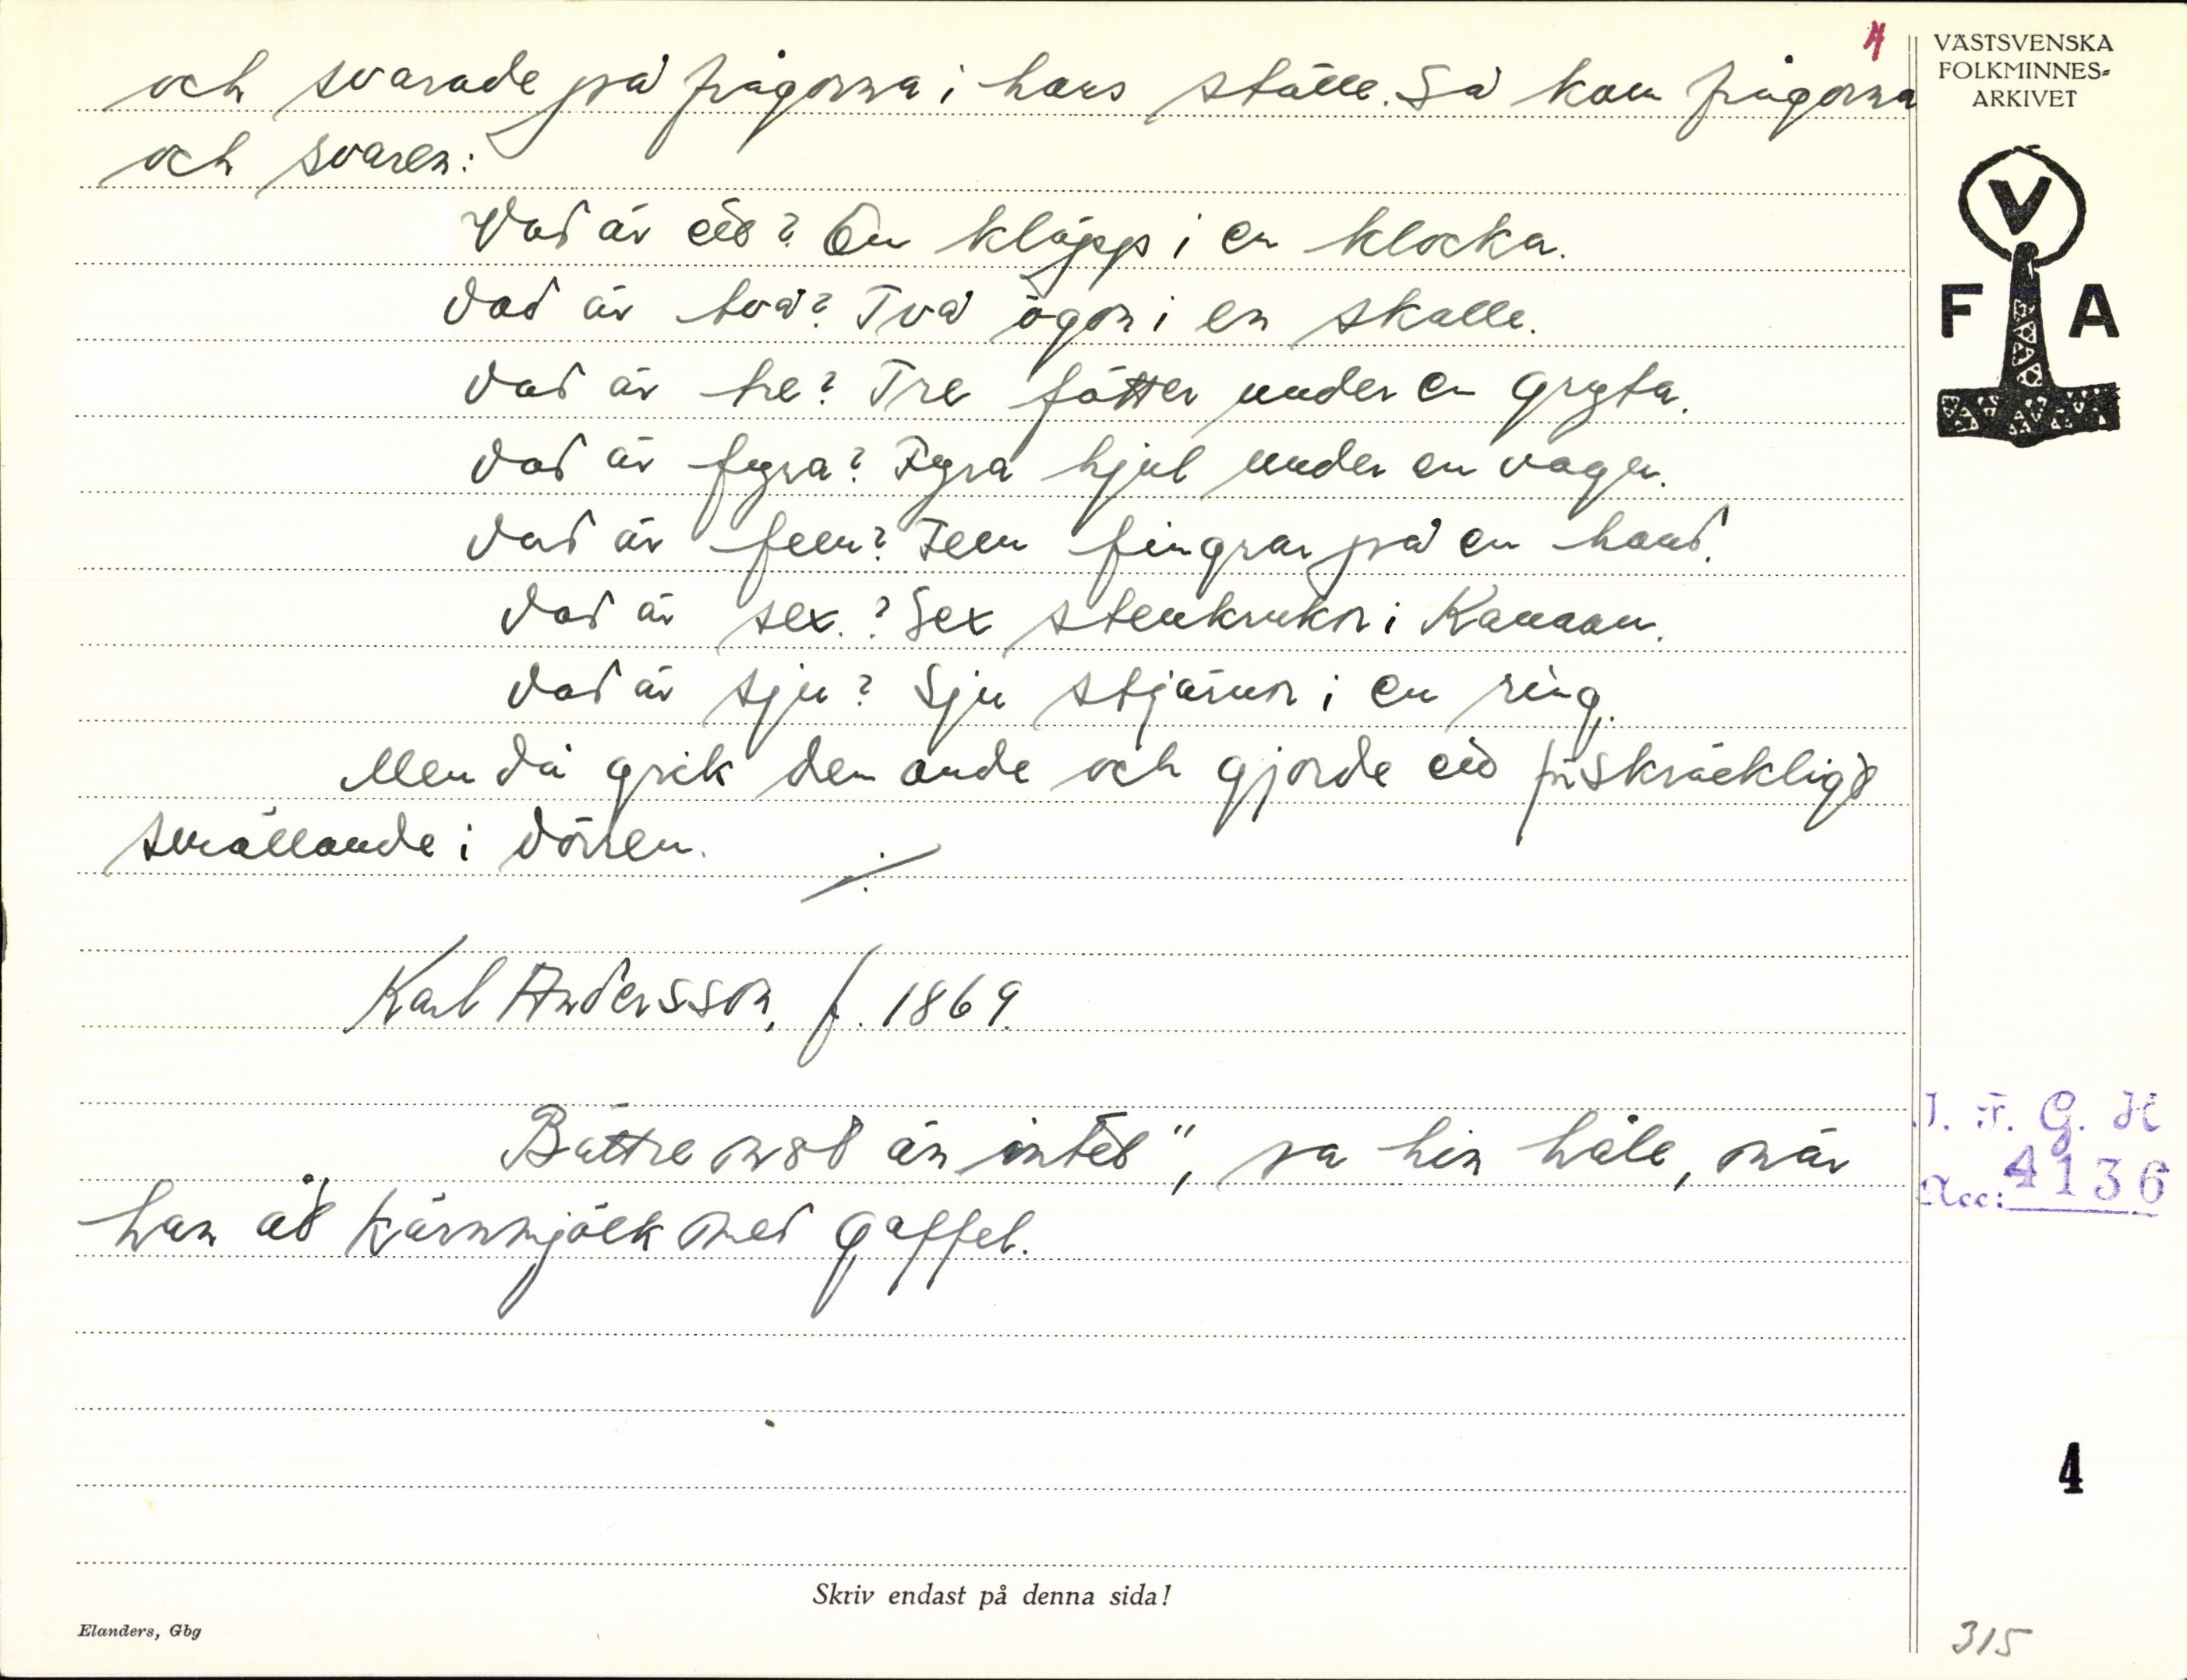 4
och svarade på frågorna i hans ställe. Så kom frågorna
och svaren:
Vad är ett? En kläpp i en klocka.
Vad är två? Två ögon i en skalle.
Vad är tre? Tre fötter under en gryta.
Vad är fyra? Fyra hjul under en vagn.
Vad är fem? Fem fingrar på en hand.
Vad är sex.? Sex stenkrukor i Kanaan.
Vad är sju? Sju stjärnor i en ring.
Men då gick den onde och gjorde ett förskräckligt
smällande i dörren.
Karl Andersson, f. 1869.
Bättre nå't än intet", sa hin håle, när
han åt kärnmjölk med gaffel.
Skriv endast på denna sida!
Elanders, Gbg
VÄSTSVENSKA
FOLKMINNES-
ARKIVET
V
F A
I. F. G. H
Acc: 4136
4
315